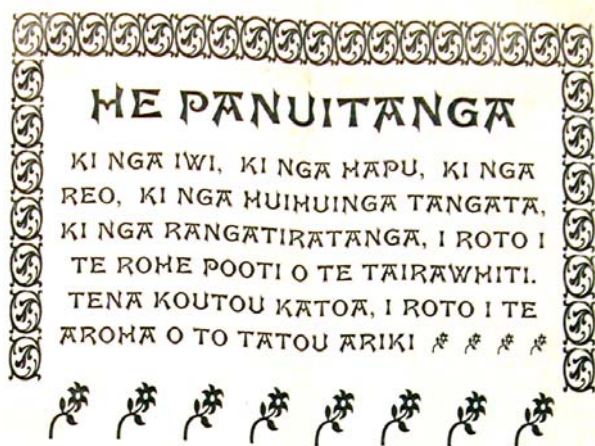 HE PANUITANGA
KI NGA IWI, KI NGA HAPU, KI NGA
REO, KI NGA HUIHUINGA TANGATA,
KI NGA RANGATIRATANGA, I ROTO I
TE ROHE POOTI O TE TAIRAWHITI.
TENA KOUTOU KATOA, I ROTO I TE
AROHA O TO TATOU ARIKI